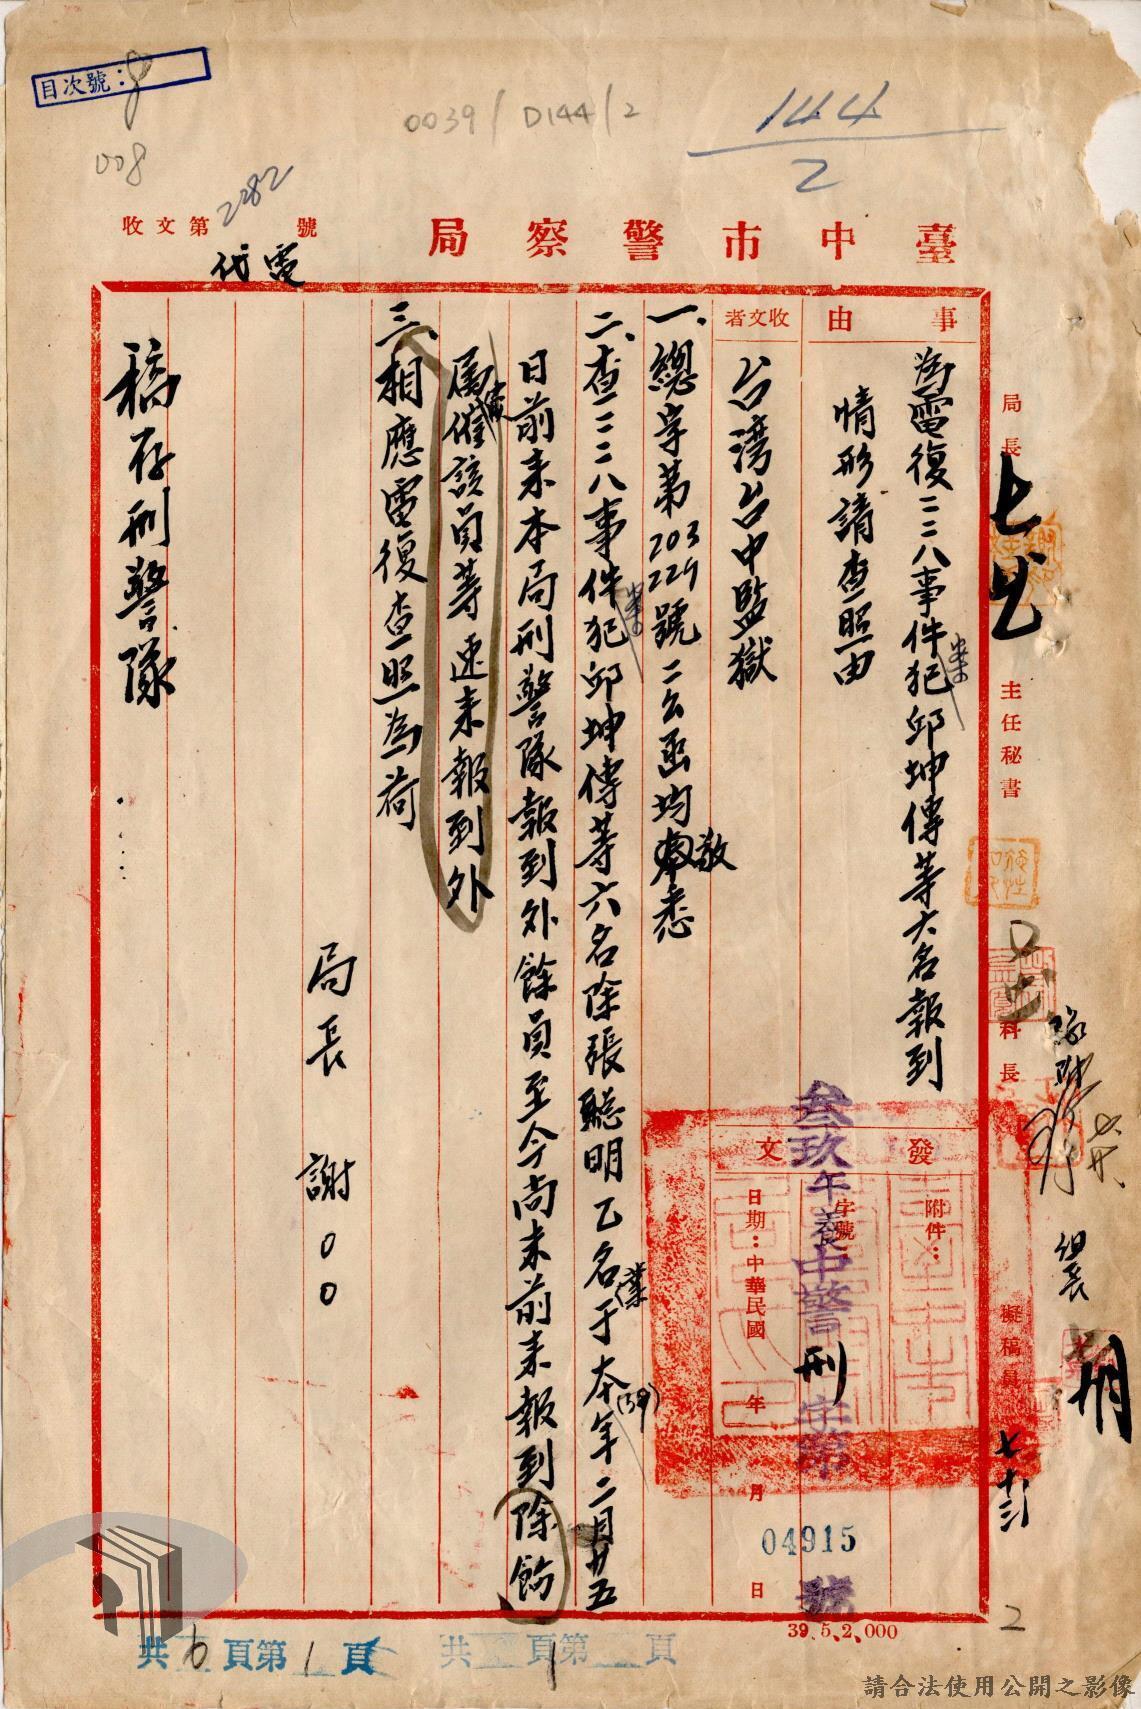 目次號：8
008
0039/D144/2
144
2
2282
臺中市警察局
收文第 號
代電
事由
為電復二二八事件犯邱坤傳等六名報到
案
情形請查照由
收文者
台湾台中監獄
發文
附件：
字號
叁玖年養中警刑字第 號
04915
日期：中華民國 年 月 日
一、總字第203 229號二公函均敬悉
二、查二二八事件犯邱坤傳等六名除張聰明乙名業于本年二月廿五
案
(39)
日前来本局刑警隊報到外餘員至今尚未前来報到除飭
属催該員等速来報到外
三、相應電復查照為荷
局長 謝〇〇
稿存刑警隊
局長
主任秘書
科長
組長
擬稿員
39.5.2,000
2
共6頁第1頁
共 頁第1頁
請合法使用公開之影像